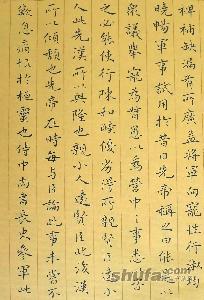 裨補缺漏有所廣益將軍向寵性行淑均
曉暢軍事試用於昔日先帝稱之曰能以
眾議舉寵為督愚以為營中之事悉
之必能使行陳和睦優劣得所親賢臣遠小
人此先漢所以興隆也親小人遠賢臣此後漢
所以傾頹也先帝在時每與臣論此事未嘗不
歎息痛恨於桓靈也侍中尚書長史參軍此